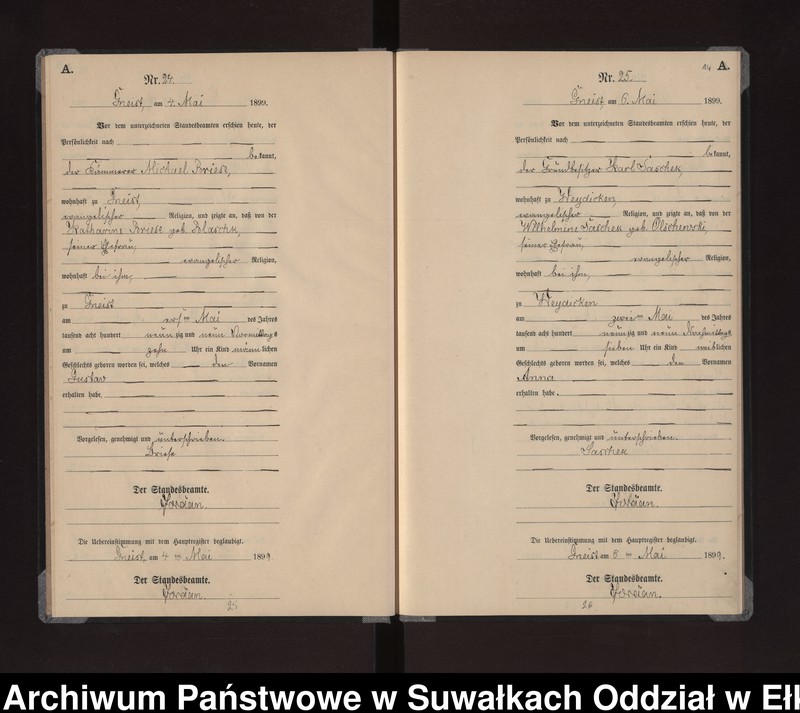 A.
Nr. 24.
Gneist, am 4. Mai 1899.
Vor dem unterzeichneten Standesbeamten erschien heute, der
Persönlichkeit nach
bekannt,
der Kämmerer Michael Briese,
wohnhaft zu Gneist,
evangelischer Religion, und zeigte an, daß von der
Katharine Briese geb.
seiner Ehefrau,
evangelischer Religion,
wohnhaft bei ihm,
zu Gneist
am ersten Mai des Jahres
tausend acht hundert neunzig und neun Vormittags
um zehn Uhr ein Kind männlichen
Geschlechts geboren worden sei, welches den Vornamen
Gustav
erhalten habe.
Vorgelesen, genehmigt und unterschrieben.
Briese
Der Standesbeamte.
Die Uebereinstimmung mit dem Hauptregister beglaubigt.
Gneist, am 4ten Mai 1899.
Der Standesbeamte.
25
14 A.
Nr. 25.
Gneist, am 6. Mai 1899.
Vor dem unterzeichneten Standesbeamten erschien heute, der
Persönlichkeit nach
bekannt,
der Grundbesitzer Karl
wohnhaft zu Weydicken,
evangelischer Religion, und zeigte an, daß von der
Wilhelmine geb. Olschewski,
seiner Ehefrau,
evangelischer Religion,
wohnhaft bei ihm,
zu Weydicken
am zweiten Mai des Jahres
tausend acht hundert neunzig und neun Nachmittags
um sieben Uhr ein Kind weiblichen
Geschlechts geboren worden sei, welches den Vornamen
Anna
erhalten habe.
Vorgelesen, genehmigt und unterschrieben.
Der Standesbeamte.
Die Uebereinstimmung mit dem Hauptregister beglaubigt.
Gneist am 6ten Mai 1899.
Der Standesbeamte.
26
Archiwum Państwowe w Suwałkach Oddział w Ełk